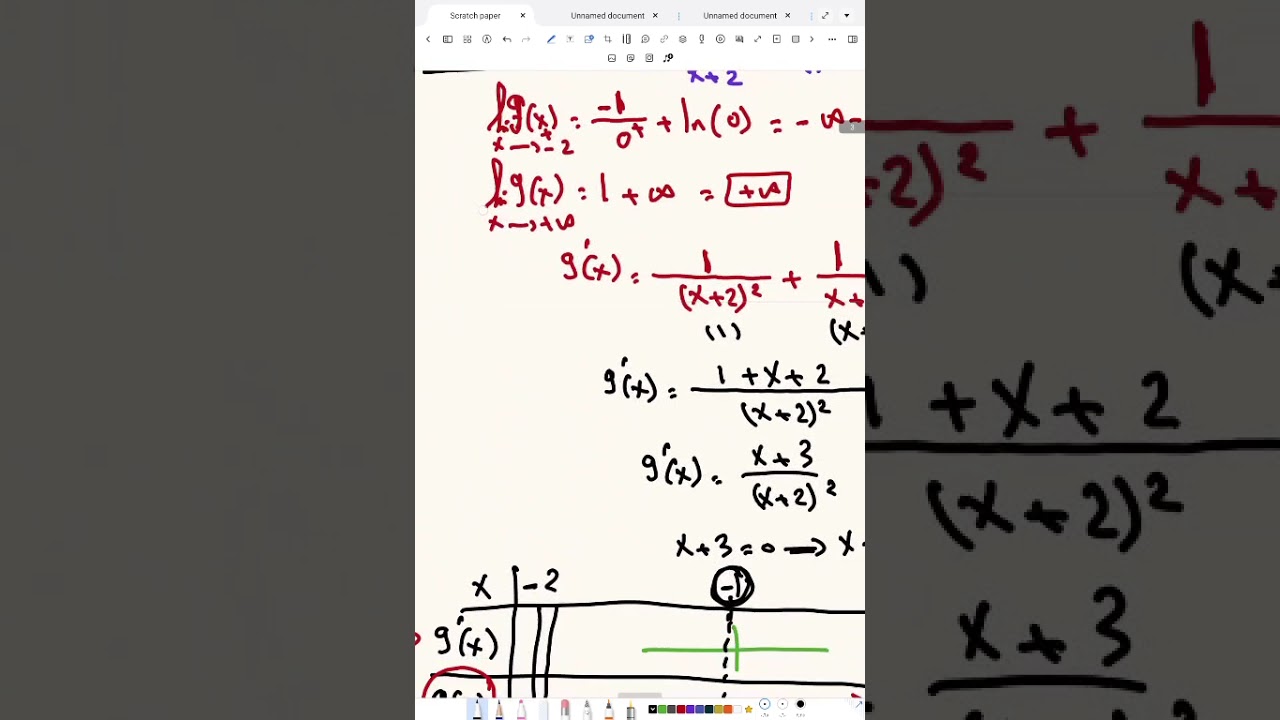 Scratch paper × Unnamed document × Unnamed document ×
x+2
lim g(x) = -1/0⁺ + ln(0) = -∞ -
x → -2⁺
lim g(x) = 1 + ∞ = +∞
x → +∞
g'(x) = 1/(x+2)² + 1/x+
(1) (x+
g'(x) = 1 + x + 2/(x+2)²
g'(x) = x+3/(x+2)²
x+3 = 0 → x
x -2 -1
g'(x)